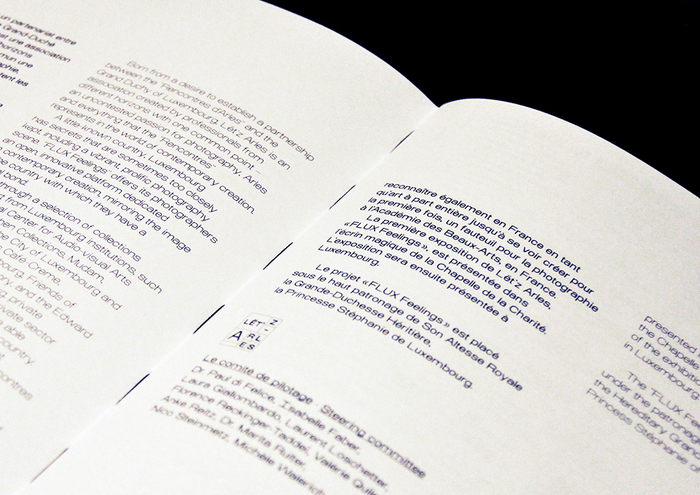 un partenariat entre
Grand-Duché
est une association
horizons
mun une
aphie,
tent les
Born from a desire to establish a partnership
between the "Rencontres d'Arles" and the
Grand Duchy of Luxembourg, Lët'z Arles is an
association created by professionals from
different horizons with one common point –
an uncontested passion for photography, Arles
and everything that the "Rencontres"
represents in the world of contemporary creation.
A little known country, Luxembourg
has secrets that are sometimes too closely
kept, including a vibrant, prolific photography
scene. "FLUX Feelings" offers its photographers
an open, innovative platform dedicated
contemporary creation, mirroring the image
the country with which they have a
through a selection of collections
from Luxembourg institutions, such
Center for Audio, visual Arts
her Collections, Mudam,
he City of Luxembourg and
Café Crème,
bourg, Friends of
y, and the Edward
private sector
able
country
reconnaître également en France en tant
qu'art à part entière jusqu'à se voir créer pour
la première fois, un fauteuil pour la photographie
à l'Académie des Beaux-Arts, en France.
La première exposition de Lët'z Arles,
«FLUX Feelings», est présentée dans
l'écrin magique de la Chapelle de la Charité.
L'exposition sera ensuite présentée à
Luxembourg.
Le projet «FLUX Feelings» est placé
sous le haut patronage de Son Altesse Royale
la Grande-Duchesse Héritière,
la Princesse Stéphanie de Luxembourg.
LËT'Z
ARLES
Le comité de pilotage Steering committee
Dr Paul di Felice, Isabelle Faber,
Laura Giallombardo, Laurent Loschetter,
Florence Reckinger-Taddeï, Valérie
Anke Reitz, Dr. Marita Ruiter,
Nico Steinmetz, Michèle
presented
the Chapelle
of the exhibiti
in Luxembourg
The "FLUX Fe
under the patronage
the Hereditary Grand
Princess Stéphanie